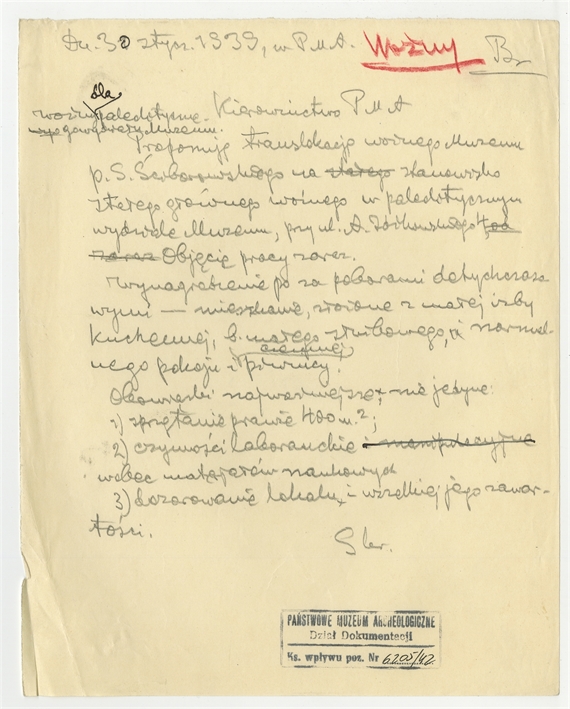 Dn. 30 stycz. 1939, w P.M.A. Woźny B.
dla
woźny paleolityczne.
Muzeum.
Kierownictwo PMA
Proponuję translokację woźnego Muzeum
p. S. Ściborowskiego na stałego stanowisko
stałego głównego woźnego w paleolitycznym
wydziale Muzeum, przy ul. A. od
zaraz Objęcie pracy zaraz.
Wynagrodzenie po za poborami dotychczaso
wymi — mieszkanie, złożone z małej izby
kuchennej, b. małego służbowego, i normal-
ciemnej
nego pokoju i piwnicy.
Obowiązki najważniejsze, nie jedyne:
1) sprzątanie prawie 400 m.²;
2) czynności laboranckie i manipulacyjne
wobec materjałów naukowych
3) dozorowanie lokalu i wszelkiej jego zawar-
tości.
PAŃSTWOWE MUZEUM ARCHEOLOGICZNE
Dział Dokumentacji
Ks. wpływu poz. Nr 6205/42